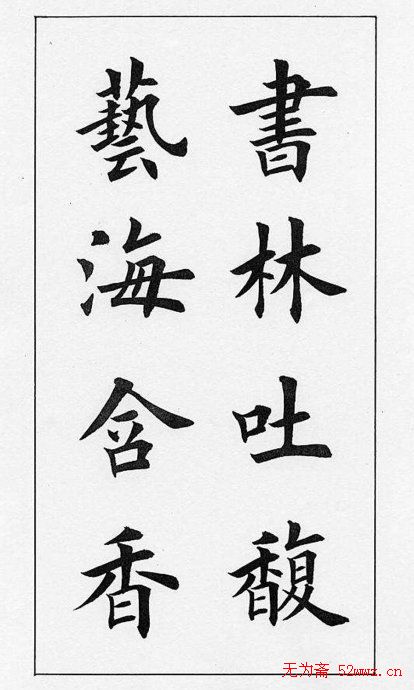 書林吐馥
藝海含香
无为斋 52wwz.cn